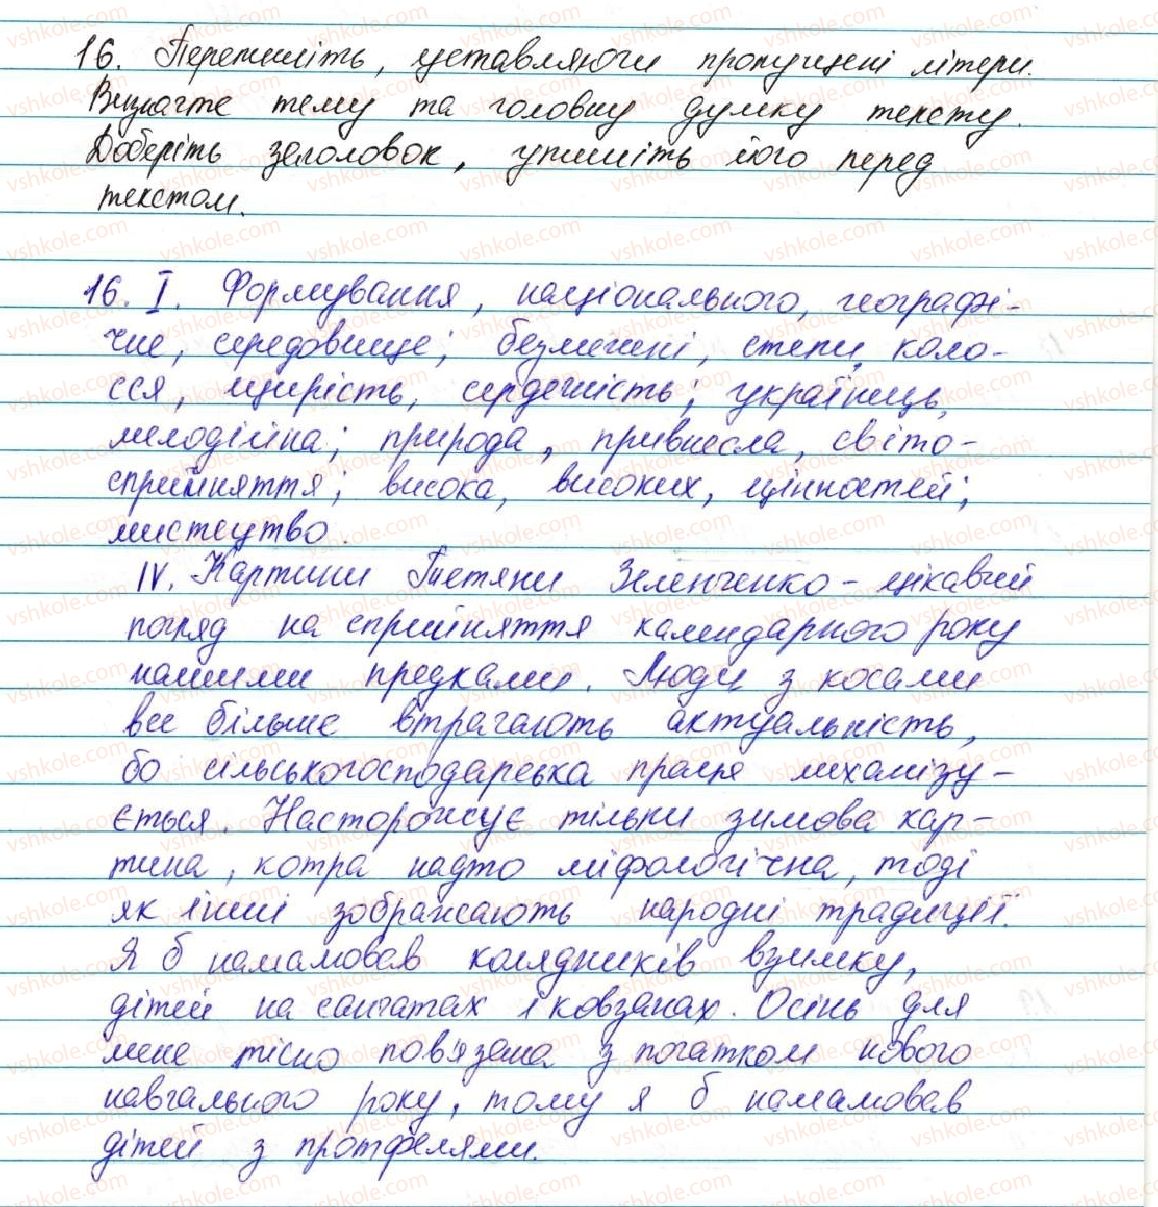 16. Перепишіть, уставляючи пропущені літери.
Визначте тему та головну думку тексту.
Доберіть заголовок, упишіть його перед
текстом.
16. I. Формування, національного, географі-
чне, середовище; безмежні, степи, коло-
сся, щирість, сердечність; українець,
мелодійна; природа, привнесла, світо-
сприйняття; висока, високих, цінностей;
мистецтво.
IV. Картини Тетяни Зеленченко - цікавий
погляд на сприйняття календарного року
нашими предками. Люди з косами
все більше втрачають актуальність,
бо сільськогосподарська праця механізу-
ється. Насторожує тільки зимова кар-
тина, котра надто міфологічна, тоді
як інші зображають народні традиції.
Я б намалював колядників взимку,
дітей на санчатах і ковзанах. Осінь для
мене тісно пов'язана з початком нового
навчального року, тому я б намалював
дітей з протфелями.